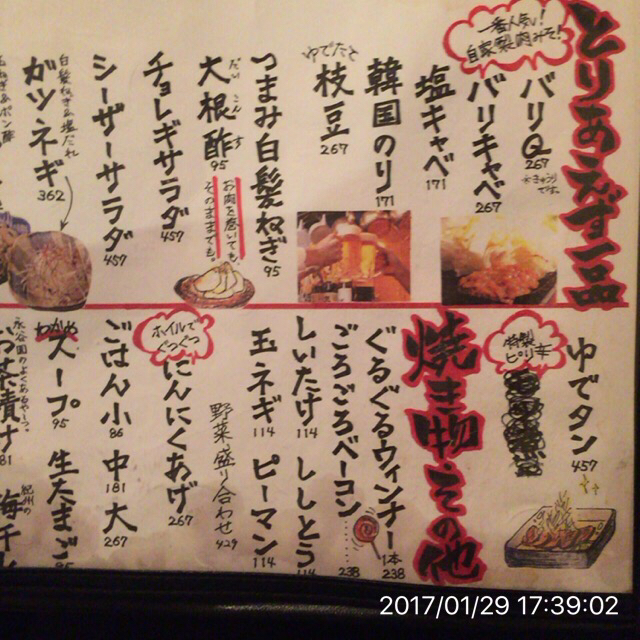 とりあえず一品
一番人気!
自家製肉みそ!
バリQ
267
*キュウリです。
バリキャベ
267
塩キャベ
171
韓国のり
171
ゆでたて
枝豆
267
つまみ白髪ねぎ
95
だいこんす
大根酢
95
お肉を巻いても、
そのままでも。
チョレギサラダ
457
シーザーサラダ
457
白髪ねぎ&塩だれ
ガツネギ
362
ゆでタン
457
特製
ピリ辛
焼き物・その他
ぐるぐるウィンナー
1本
238
ごろごろベーコン
238
しいたけ
114
ししとう
玉ネギ
114
ピーマン
114
野菜盛り合わせ
429
ホイルで
ぐつぐつ
にんにくあげ
267
ごはん小
86
中
181
大
267
わかめ
スープ
95
生たまご
永谷園の
お茶漬け
紀州の
2017/01/29 17:39:02